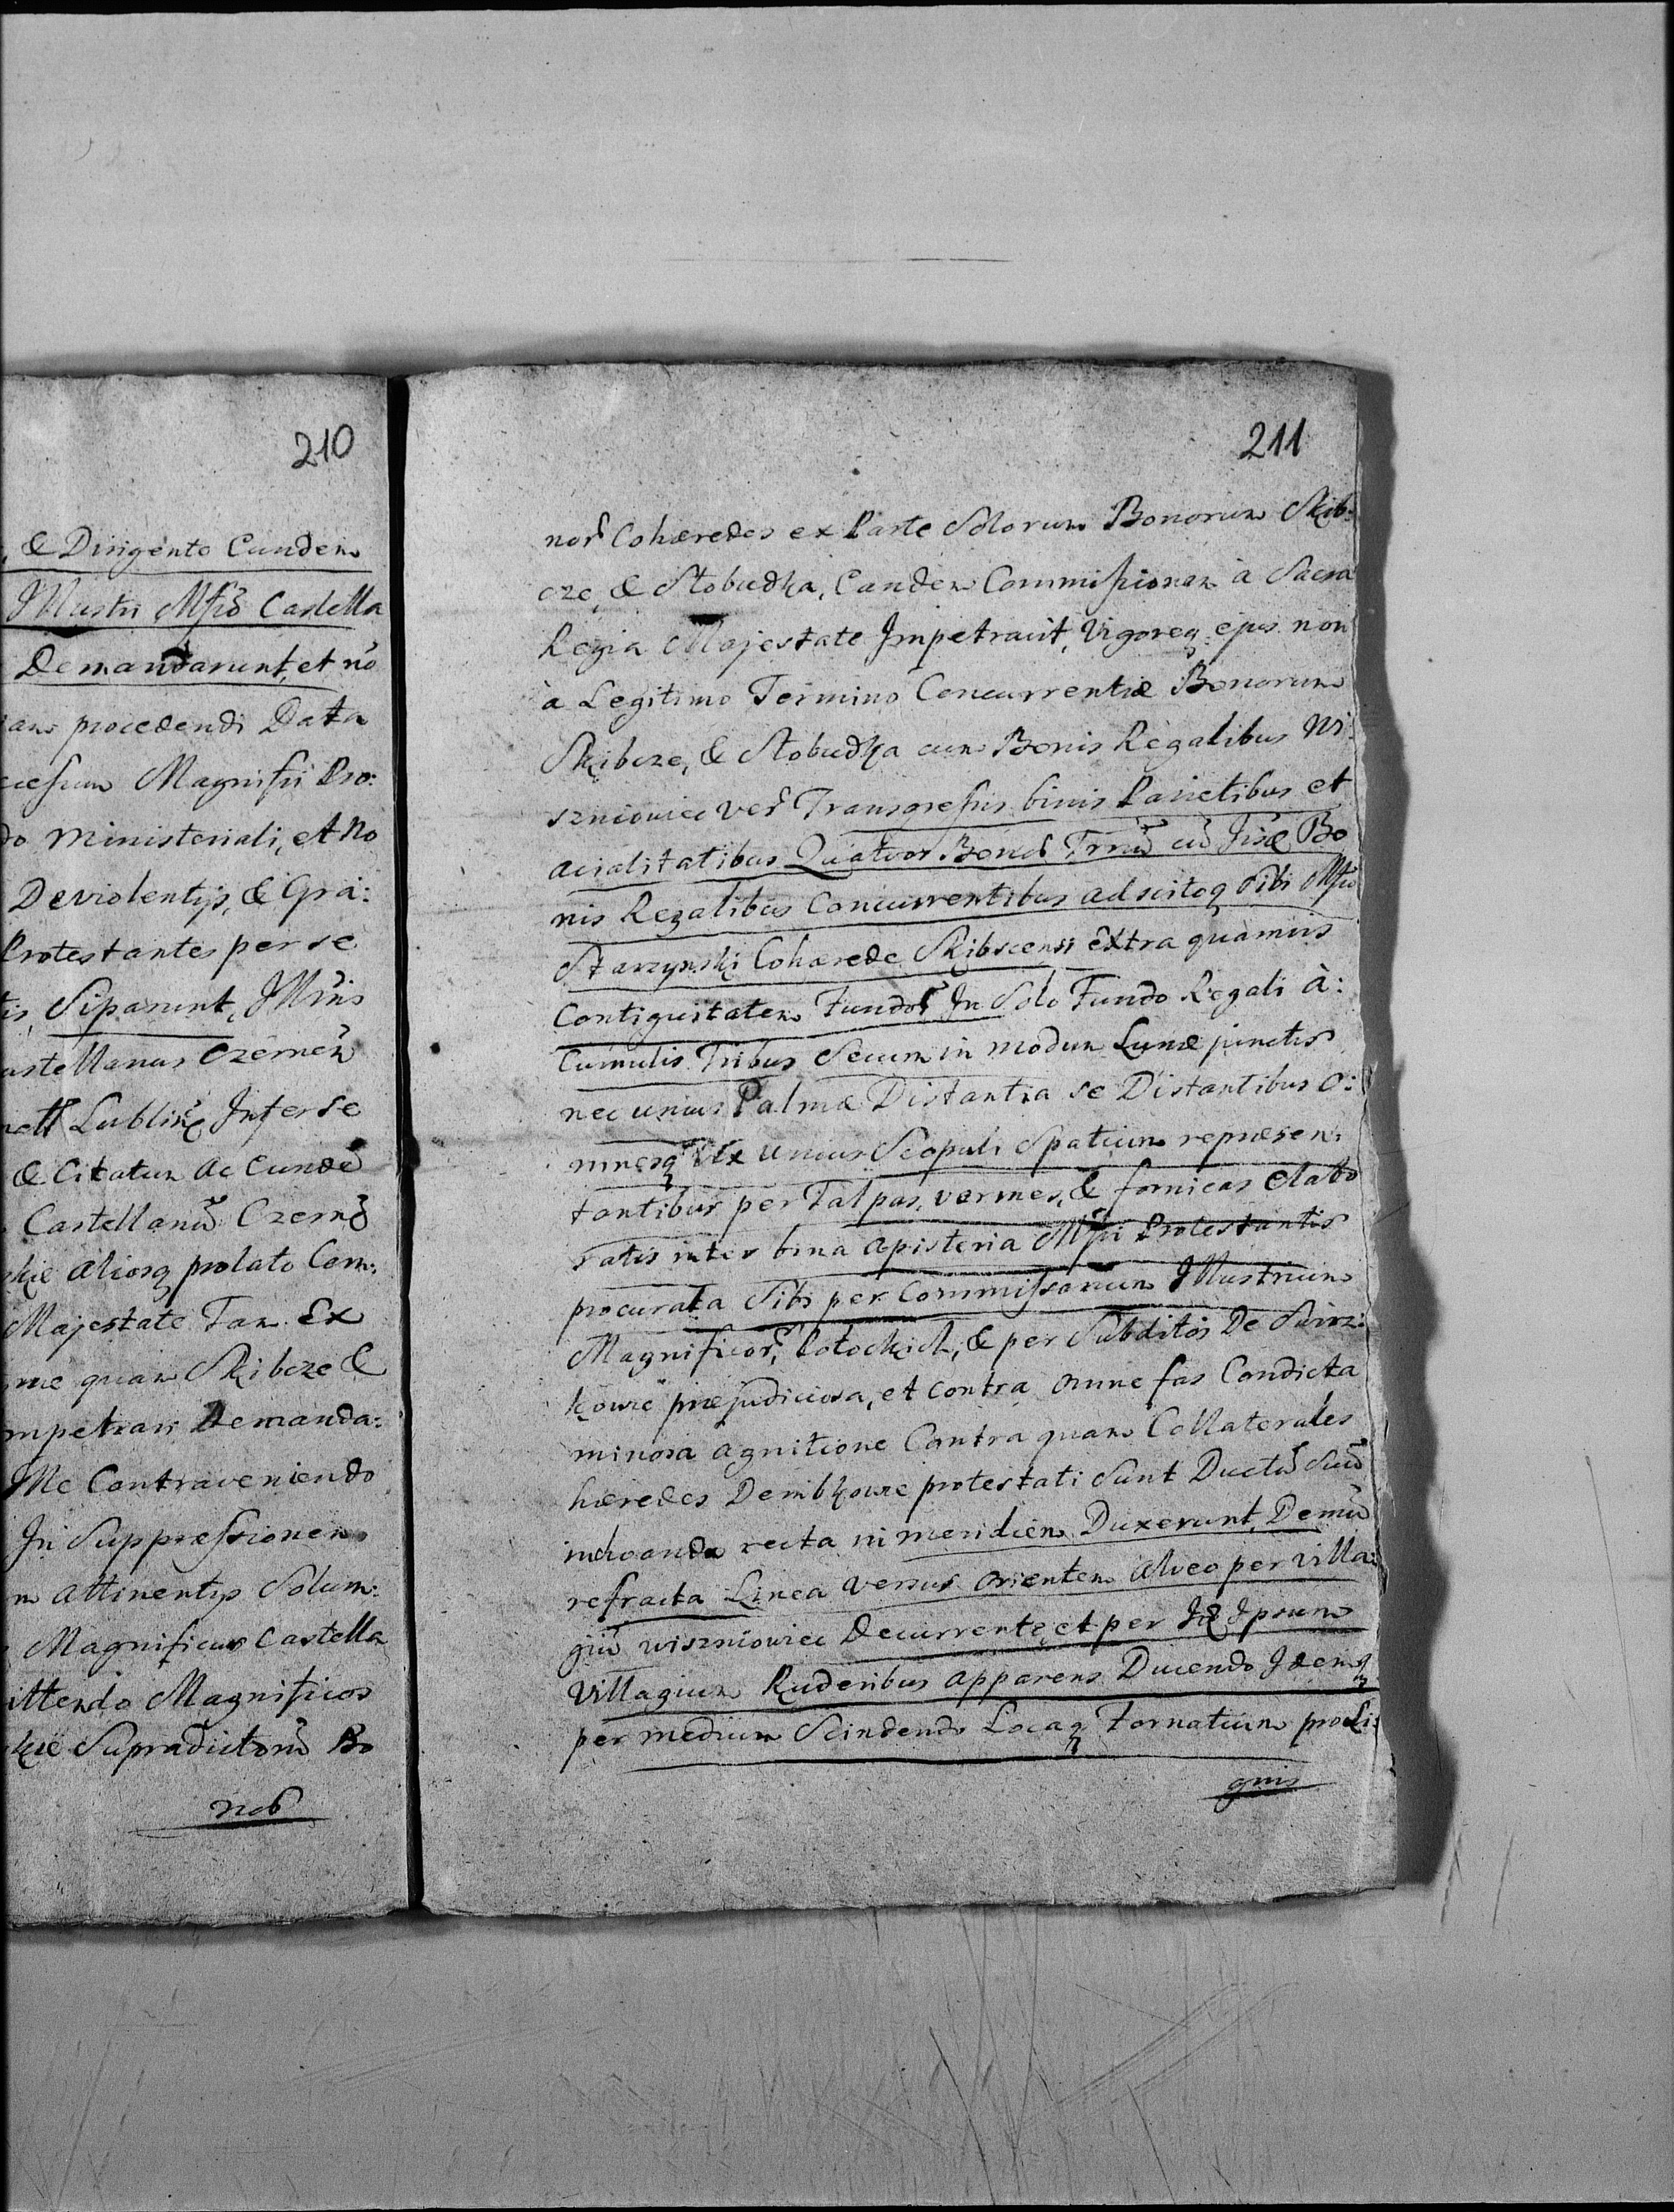 210
& Dirigente Eundem
Illustri Mfco Castella
Demandarunt, et nō
procedendi Data
Magnifici Pro:
do Ministeriali, et No
De violentijs, & Gra:
Protestantes per se
Siparunt, Illris
astellanus Czerneń
Inter se
& Citatum Ac Eundē
Castellanū Czerń
skie aliosq prolato Com:
Majestate Tam Ex
me quam Skibcze &
mpetrari Demanda:
Me Contraveniendo
In Suppressionem
m attinentijs Solum:
Magnificus Castella
ittendo Magnificos
kie Supradictorū Bo
nor̃
211
nor̃ Cohæredes ex Parte Solorum Bonorum Skib:
cze, & Stobudka, Eandem Commissionem à Sacra
Regia Majestate Impetravit, Vigoreq ejus non
à Legitimo Termino Concurrentiæ Bonorum
Skibcze, & Stobudka cum Bonis Regalibus Wi:
szniowiec ver̃ Transgressis binis Parietibus et
acialitatibus Quatuor Bonor̃ Trrūm cū Bo
nis Regalibus Concurrentibus adscitoq Sibi Mfco
Starzynski Cohærede Skibscensi extra quamvis
Contiguitatem Fundor̃ In Solo Fundo Regali à:
Cumulis Tribus Secum in modum Lunæ junctis
nec unius Palmæ Distantia se Distantibus o:
mnesq Vix unius Scopuli Spatium repræsen:
tantibus per Talpas, vermes, & formicas elabo
ratis inter bina apisteria Mfci Protestantis
procurata Sibi per Commissarium Illustrium
Magnificor̃ Potockich, & per Subditos De
kowce præjudiciosa, et contra omne fas Condicta
minosa agnitione Contra quam Collaterales
hæredes Dembkowce protestati Sunt Ductū Suū
inchoando recta in meridiem Duxerunt, Demū
refracta Linea versus orientem alveo per villa:
giū Wiszniowiec Decurrente, et per Ipsum
Villagium Ruderibus apparens Ducendo Idemq
per medium Scindendo Locaq Fornatium pro Li:
gnis